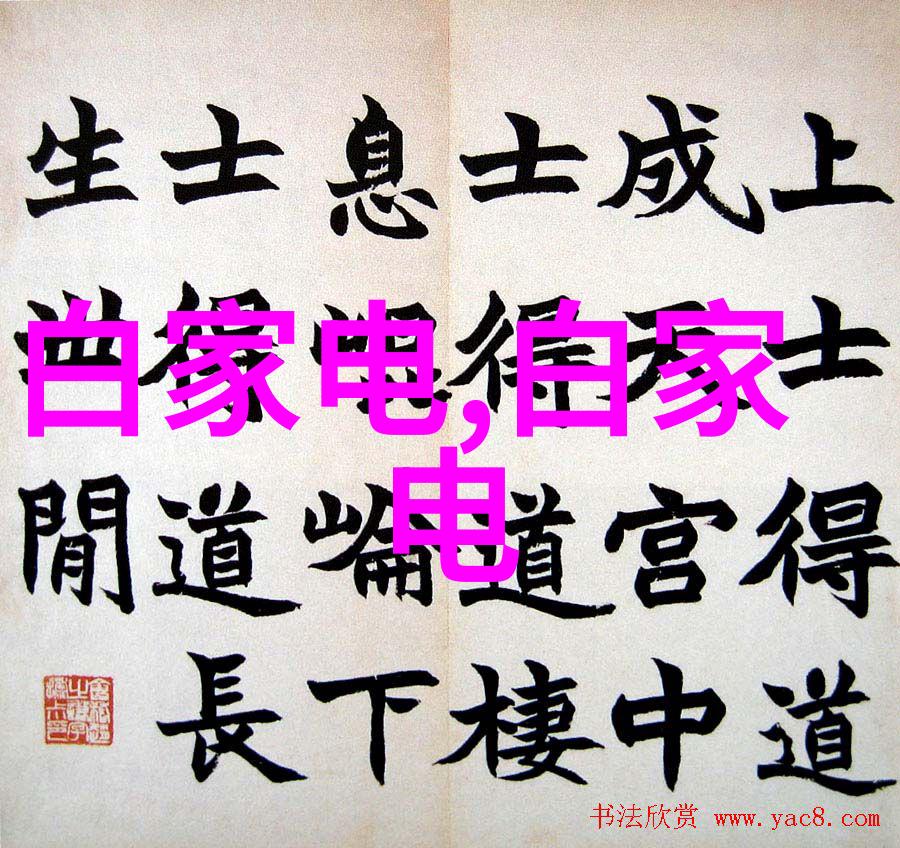 上士得道
成天宮中
士得道棲
息崐崘下
士得道長
生世閒
白家电,白家
电
书法欣赏 www.yac8.com